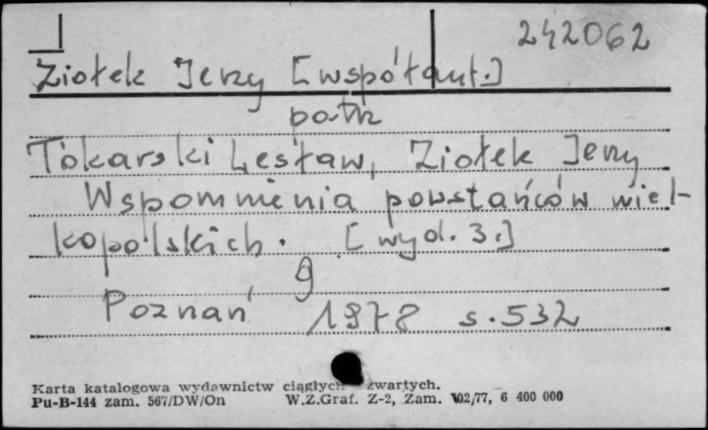 242062
Ziołek Jerzy [współaut.]
patrz
Tokarski Lesław, Ziołek Jerzy
Wspomnienia powstańców wiel-
kopolskich. [wyd. 3.]
g
Poznań 1978 s. 532
Karta katalogowa wydawnictw ciągłych zwartych.
Pu-B-144 zam. 567/DW/On W.Z.Graf. Z-2, Zam. 102/77, 6 400 000